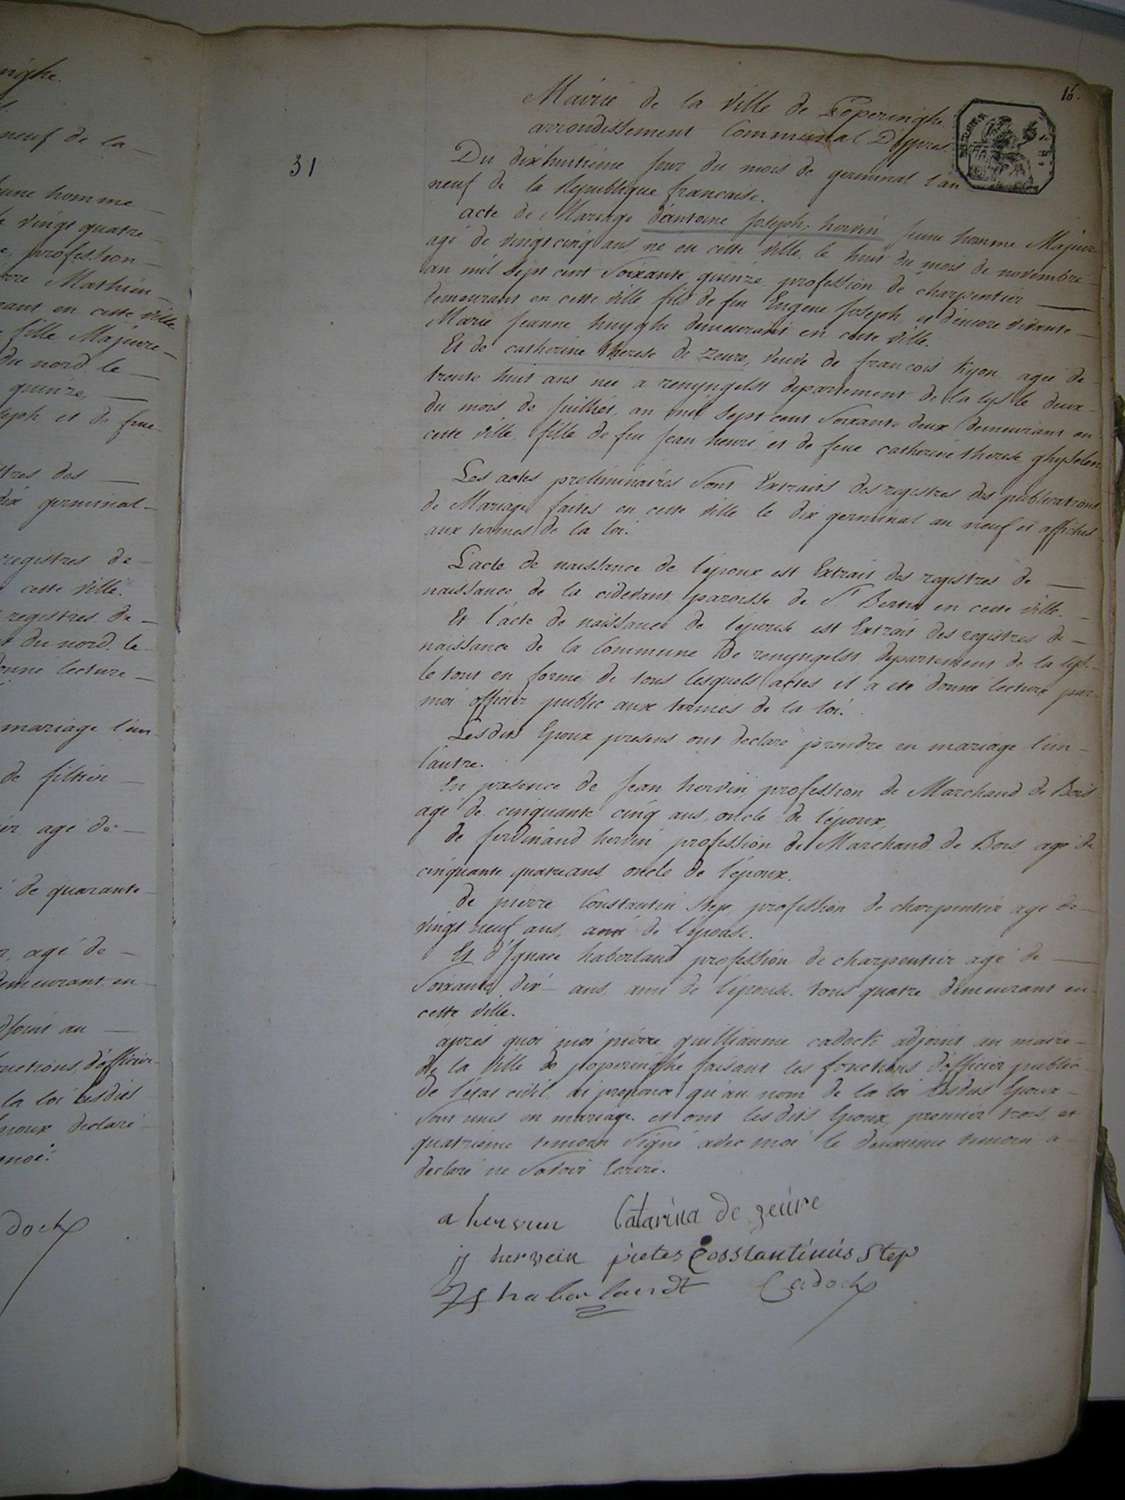 nighe.
neuf de la —
jeune homme —
vingt quatre —
profession —
Mathieu —
en cette ville
fille Majeure —
du nord le —
quinze —
seph et de feue
des —
dix germinal —
registres de —
cette ville.
registres de —
du nord le
donne lecture —
mariage l'un
de filtier —
agé de —
de quarante
agé de —
demeurant en —
adjoint au —
fonctions d'officier
la loi lesdits
Epoux declaré
moi.
dock
16.
31
Mairie de la ville de Poperinghe
arrondissement Communal D'ypres
Du dixhuitieme jour du mois de germinal l'an
neuf de la Republique francaise.
acte de Mariage d'antoine Joseph hervin jeune homme Majeur
agé de vingt cinq ans né en cette ville, le huit du mois de novembre
an mil sept cent soixante quinze profession de charpentier —
demeurant en cette ville fils de feu Eugene Joseph et d'encore vivante —
Marie Jeanne huyghe demeurant en cette ville.
Et de catherine therese de Zeure, veuve de francois tyon agée de
trente huit ans née a renyngelst departement de la Lys le deux
du mois de Juillet, an mil sept cent soixante deux demeurant en
cette ville, fille de feu Jean henri et de feue catherine therese ghyselen
Les actes preliminaires sont Extraits des registres des publications
de Mariage faites en cette ville le dix germinal an neuf et affiches
aux termes de la loi.
L'acte de naissance de l'époux est Extrait des registres de —
naissance de la cidevant paroisse de St Bertin en cette ville. —
Et l'acte de naissance de l'épouse est Extrait des registres de —
naissance de la Commune De renyngelst departement de la Lys
le tout en forme, de tous lesquels actes il a été donné lecture par
moi officier public aux termes de la loi.
Lesdits Epoux presens ont declaré prendre en mariage l'un
l'autre.
En presence de Jean hervin profession de Marchand de Bois
agé de cinquante cinq ans, oncle de l'époux
de ferdinand hervin profession de Marchand de Bois agé de
cinquante quatre ans oncle de l'époux.
de pierre Constantin Step profession de charpentier agé de
vingt neuf ans, ami de l'épouse.
Et d'Ignace haberland profession de charpentier agé de —
soixante dix — ans ami de l'épouse. tous quatre demeurant en
cette ville.
après quoi moi pierre guilliaume cadock adjoint au maire —
de la ville de poperinghe faisant les fonctions d'officier public
de l'état civil, ai prononcé qu'au nom de la loi lesdits Epoux —
sont unis en mariage. et ont les dits Epoux, premier trois et
quatrieme temoin signé avec moi le deuxieme temoin a —
declaré ne savoir Ecrire.
a hervein Catarina de zeure
jj hervein pieter Cosstantinus Step
haberlandt Cadock